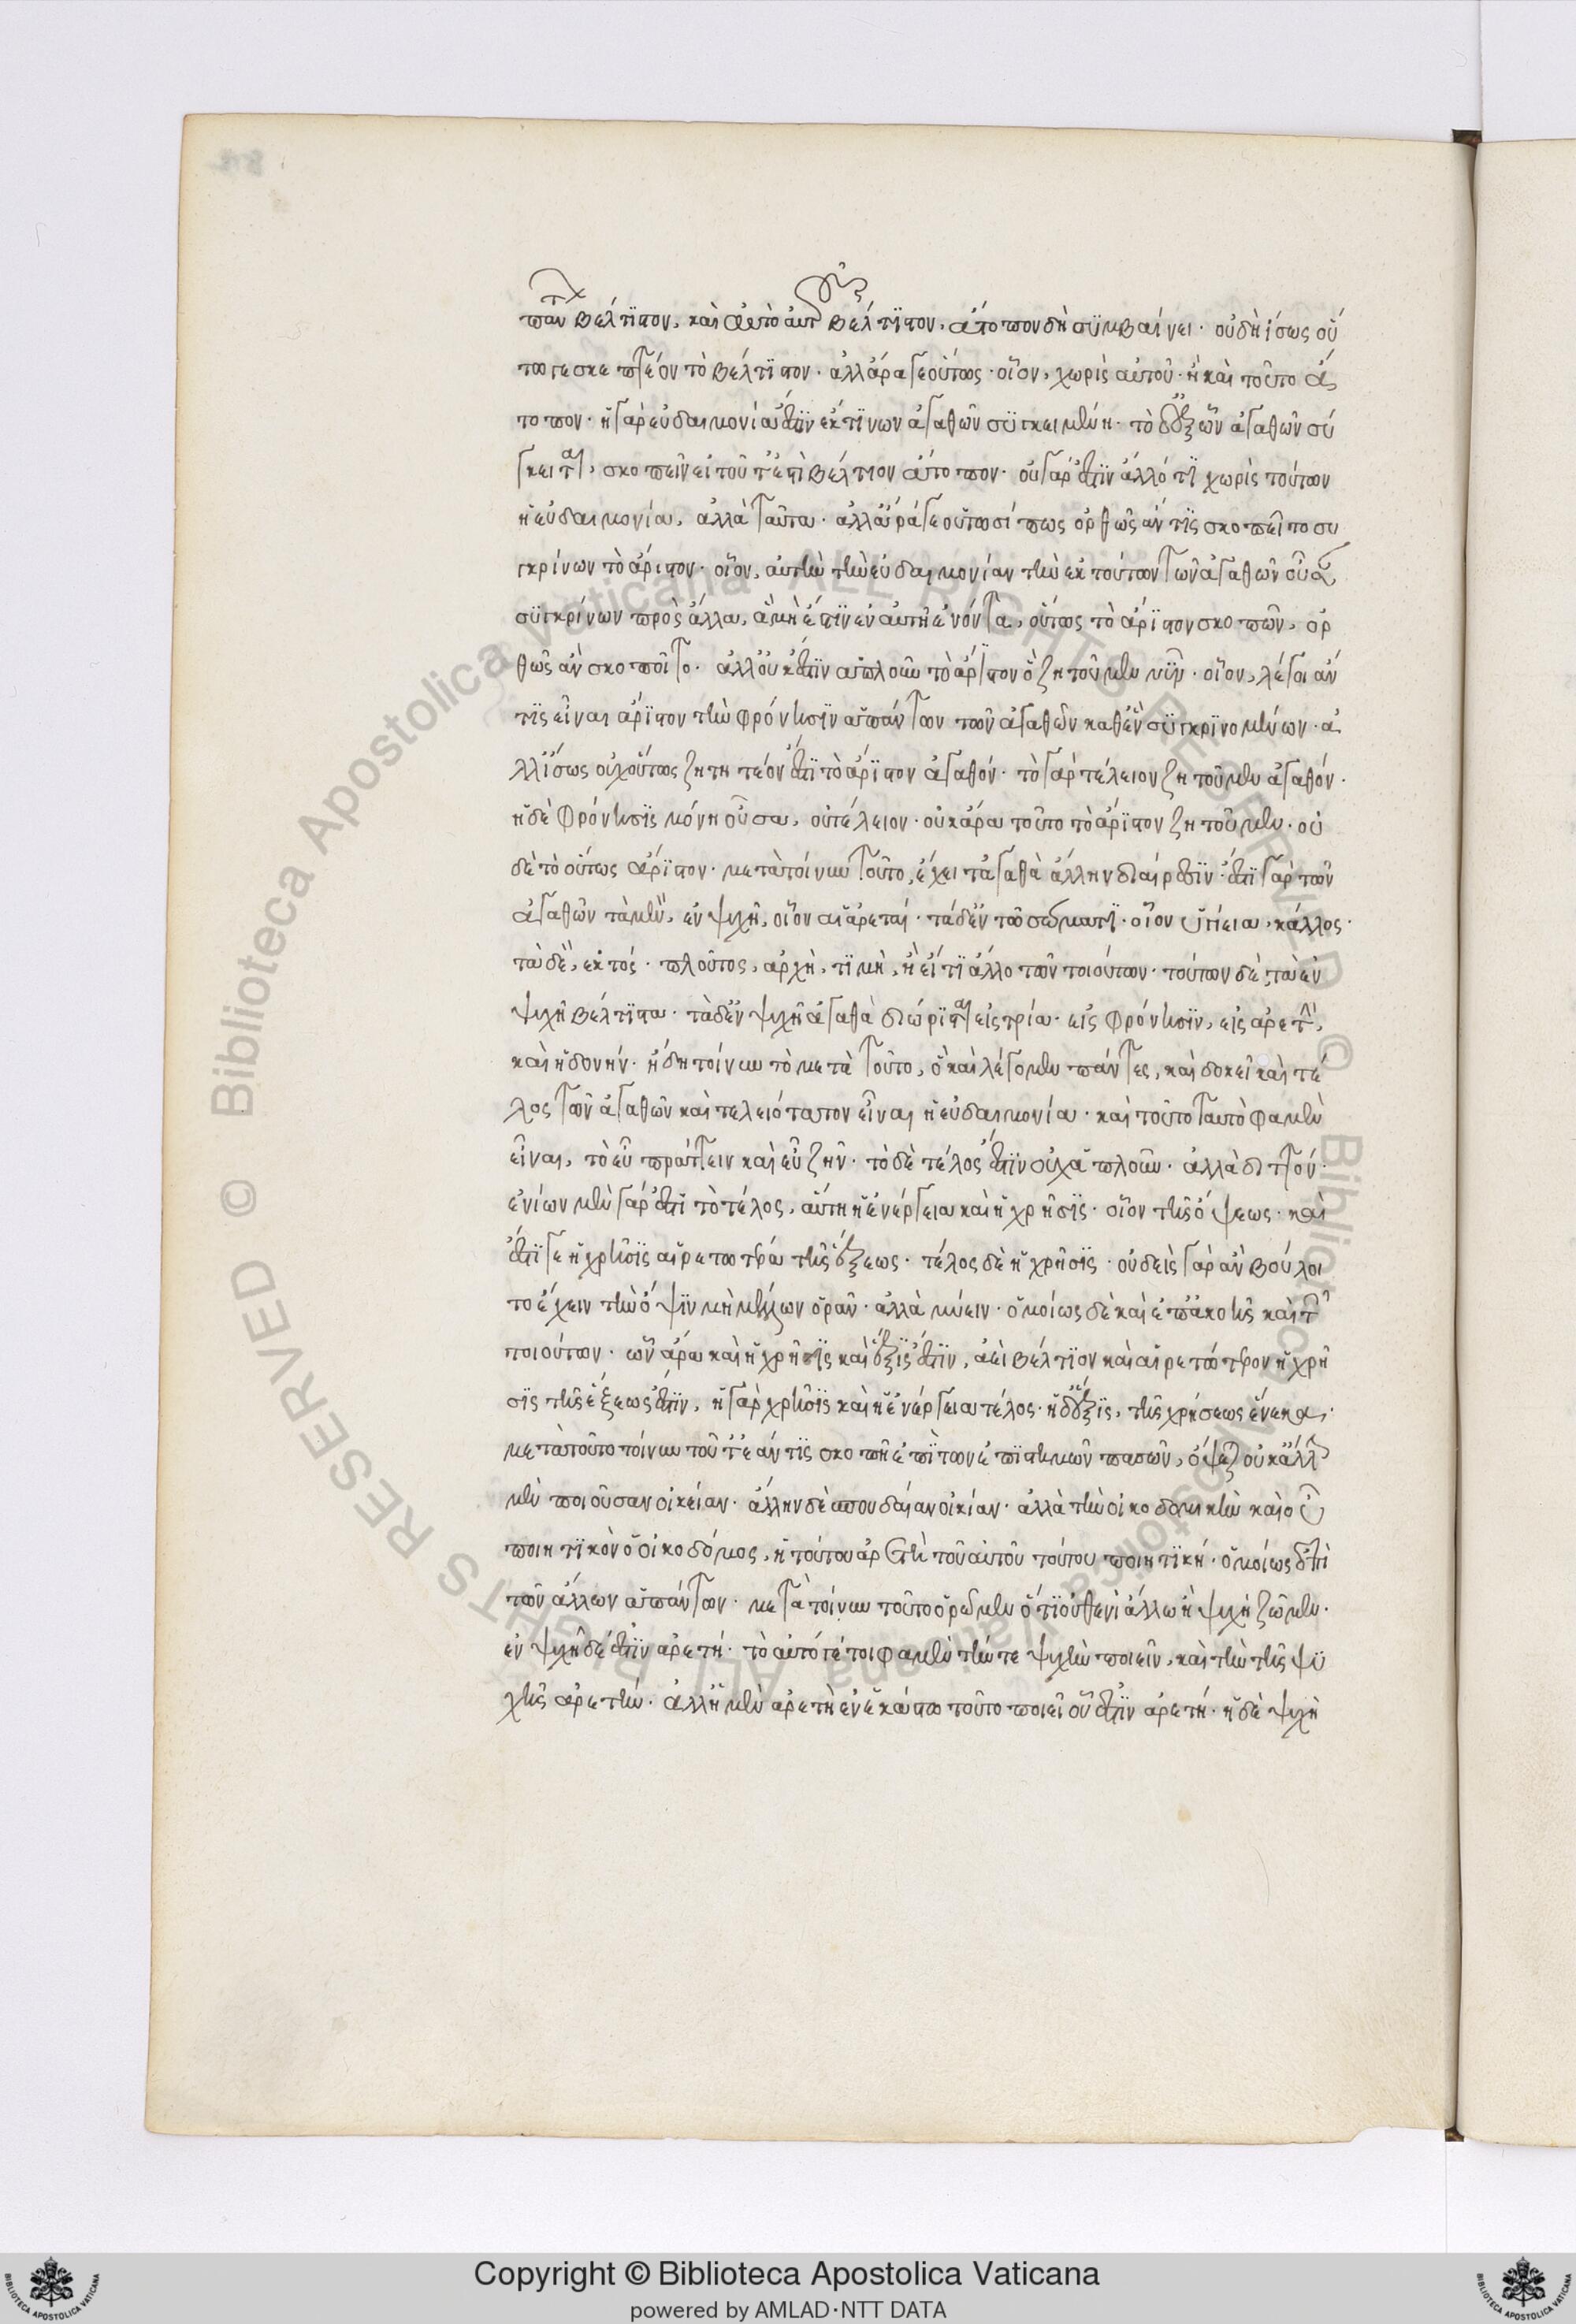 πάντων βέλτιστον, καὶ αὐτὸ αὑτοῦ βέλτιστον. ἄτοπον δὴ συμβαίνει· οὐ δὴ ἴσως οὕ
τω γε σκεπτέον τὸ βέλτιστον. ἀλλ' ἆρά γε οὕτως· οἷον, χωρὶς αὐτοῦ· ἢ καὶ τοῦτο ἄ
τοπον· ἡ γὰρ εὐδαιμονία ἐστὶν ἐκ τίνων ἀγαθῶν συγκειμένη· τὸ δ' ἐξ ὧν ἀγαθῶν σύ
γκειται, σκοπεῖν εἰ τοῦτ' ἐστὶ βέλτιον ἄτοπον· οὐ γάρ ἐστιν ἄλλό τι χωρὶς τούτων
ἡ εὐδαιμονία, ἀλλὰ ταῦτα· ἀλλ' ἆρά γε οὕτωσί πως ὀρθῶς ἄν τις σκοπεῖτο συ
γκρίνων τὸ ἄριστον· οἷον, αὐτὴν τὴν εὐδαιμονίαν τὴν ἐκ τούτων τῶν ἀγαθῶν οὖσαν
συγκρίνων πρὸς ἄλλα, ἃ μή ἐστιν ἐν αὐτῇ ἐνόντα, οὕτως τὸ ἄριστον σκοπῶν, ὀρ
θῶς ἂν σκοποῖτο· ἀλλ' οὐκ ἔστιν ἁπλοῦν τὸ ἄριστον ὃ ζητοῦμεν νῦν· οἷον, λέγοι ἄν
τις εἶναι ἄριστον τὴν φρόνησιν ἁπάντων τῶν ἀγαθῶν καθ' ἓν συγκρινομένων· ἀ
λλ' ἴσως οὐχ οὕτως ζητητέον ἐστὶ τὸ ἄριστον ἀγαθόν· τὸ γὰρ τέλειον ζητοῦμεν ἀγαθόν·
ἡ δὲ φρόνησις μόνη οὖσα, οὐ τέλειον· οὐκ ἄρα τοῦτο τὸ ἄριστον ζητοῦμεν· οὐ
δὲ τὸ οὕτως ἄριστον· μετὰ τοίνυν τοῦτο, ἔχει τἀγαθὰ ἄλλην διαίρεσιν· ἔστι γὰρ τῶν
ἀγαθῶν τὰ μὲν, ἐν ψυχῇ, οἷον αἱ ἀρεταί· τὰ δ' ἐν τῷ σώματι· οἷον ὑγίεια, κάλλος·
τὰ δὲ, ἐκτός· πλοῦτος, ἀρχὴ, τιμὴ, ἢ εἴ τι ἄλλο τῶν τοιούτων· τούτων δὲ τὰ ἐν
ψυχῇ βέλτιστα· τὰ δ' ἐν ψυχῇ ἀγαθὰ διώρισται εἰς τρία· εἰς φρόνησιν, εἰς ἀρετὴν,
καὶ ἡδονήν· ἤδη τοίνυν τὸ μετὰ τοῦτο, ὃ καὶ λέγομεν πάντες, καὶ δοκεῖ καὶ τέ
λος τῶν ἀγαθῶν καὶ τελειότατον εἶναι ἡ εὐδαιμονία· καὶ τοῦτο ταυτὸ φαμὲν
εἶναι, τὸ εὖ πράττειν καὶ εὖ ζῆν· τὸ δὲ τέλος ἐστὶν οὐχ ἁπλοῦν· ἀλλὰ διττόν·
ἐνίων μὲν γάρ ἐστι τὸ τέλος, αὕτη ἡ ἐνέργεια καὶ ἡ χρῆσις· οἷον τῆς ὄψεως· καὶ
ἔστι γε ἡ χρῆσις αἱρετωτέρα τῆς ἕξεως· τέλος δὲ ἡ χρῆσις· οὐδεὶς γὰρ ἂν βούλοι
το ἔχειν τὴν ὄψιν μὴ μέλλων ὁρᾶν· ἀλλὰ μύειν· ὁμοίως δὲ καὶ ἐπ' ἀκοῆς καὶ τῶν
τοιούτων· ὧν ἄρα καὶ ἡ χρῆσις καὶ ἕξις ἐστὶν, ἀεὶ βέλτιον καὶ αἱρετώτερον ἡ χρῆ
σις τῆς ἕξεως ἐστὶν, ἡ γὰρ χρῆσις καὶ ἡ ἐνέργεια τέλος· ἡ δ' ἕξις, τῆς χρήσεως ἕνεκα·
μετὰ τοῦτο τοίνυν τοῦτ' ἐάν τις σκοπῇ ἐπὶ τῶν ἐπιστημῶν πασῶν, ὄψεται οὐκ ἄλλην
μὲν ποιοῦσαν οἰκείαν· ἄλλην δὲ σπουδαίαν οἰκίαν· ἀλλὰ τὴν οἰκοδομικὴν καὶ οὗ
ποιητικὸν ὁ οἰκοδόμος, ἡ τούτου ἀρετὴ τοῦ αὐτοῦ τούτου ποιητική· ὁμοίως δ' ἐπὶ
τῶν ἄλλων ἁπάντων· μετὰ τοίνυν τοῦτο ὁρῶμεν ὅτι οὐθενὶ ἄλλῳ ἢ ψυχῇ ζῶμεν·
ἐν ψυχῇ δέ ἐστιν ἀρετή· τὸ αὐτό γέ τοι φαμὲν τήν τε ψυχὴν ποιεῖν, καὶ τὴν τῆς ψυ
χῆς ἀρετήν· ἀλλ' ἡ μὲν ἀρετὴ ἐν ἑκάστῳ τοῦτο ποιεῖ οὗ ἐστὶν ἀρετή· ἡ δὲ ψυχὴ
Copyright © Biblioteca Apostolica Vaticana
powered by AMLAD·NTT DATA